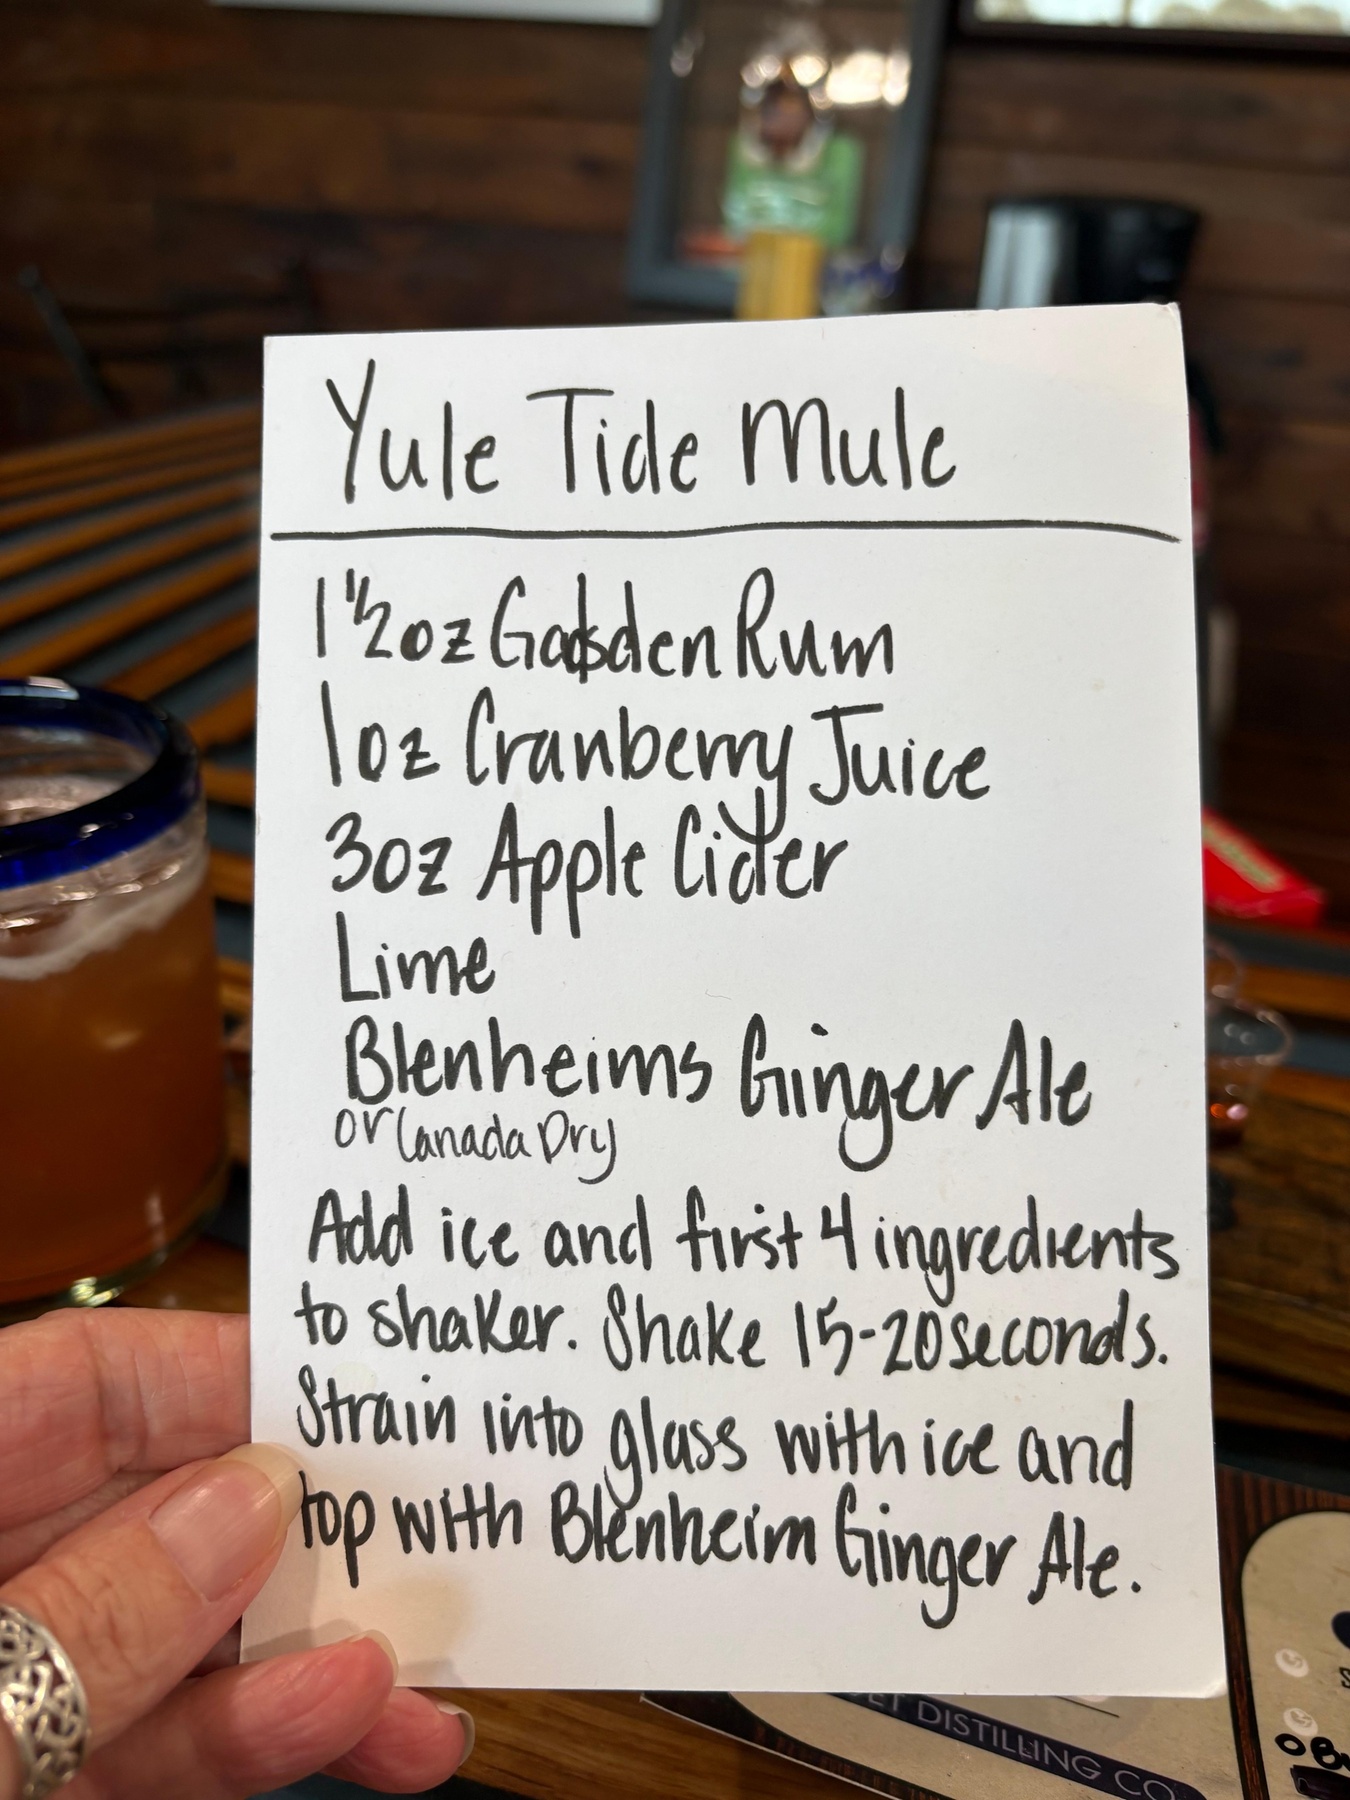 Yule Tide Mule
1 1/2oz Gadsden Rum
1oz Cranberry Juice
3oz Apple Cider
Lime
Blenheims Ginger Ale
or Canada Dry
Add ice and first 4 ingredients
to shaker. Shake 15-20 seconds.
Strain into glass with ice and
top with Blenheim Ginger Ale.
DISTILLING CO